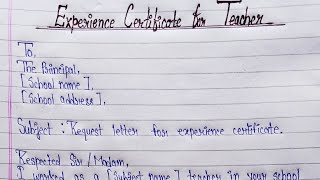 Experience Certificate for Teacher
To,
The Principal,
[School name],
[School address],
Subject : Request letter for experience certificate.
Respected Sir/Madam,
I worked as a [Subject name] teacher in your school